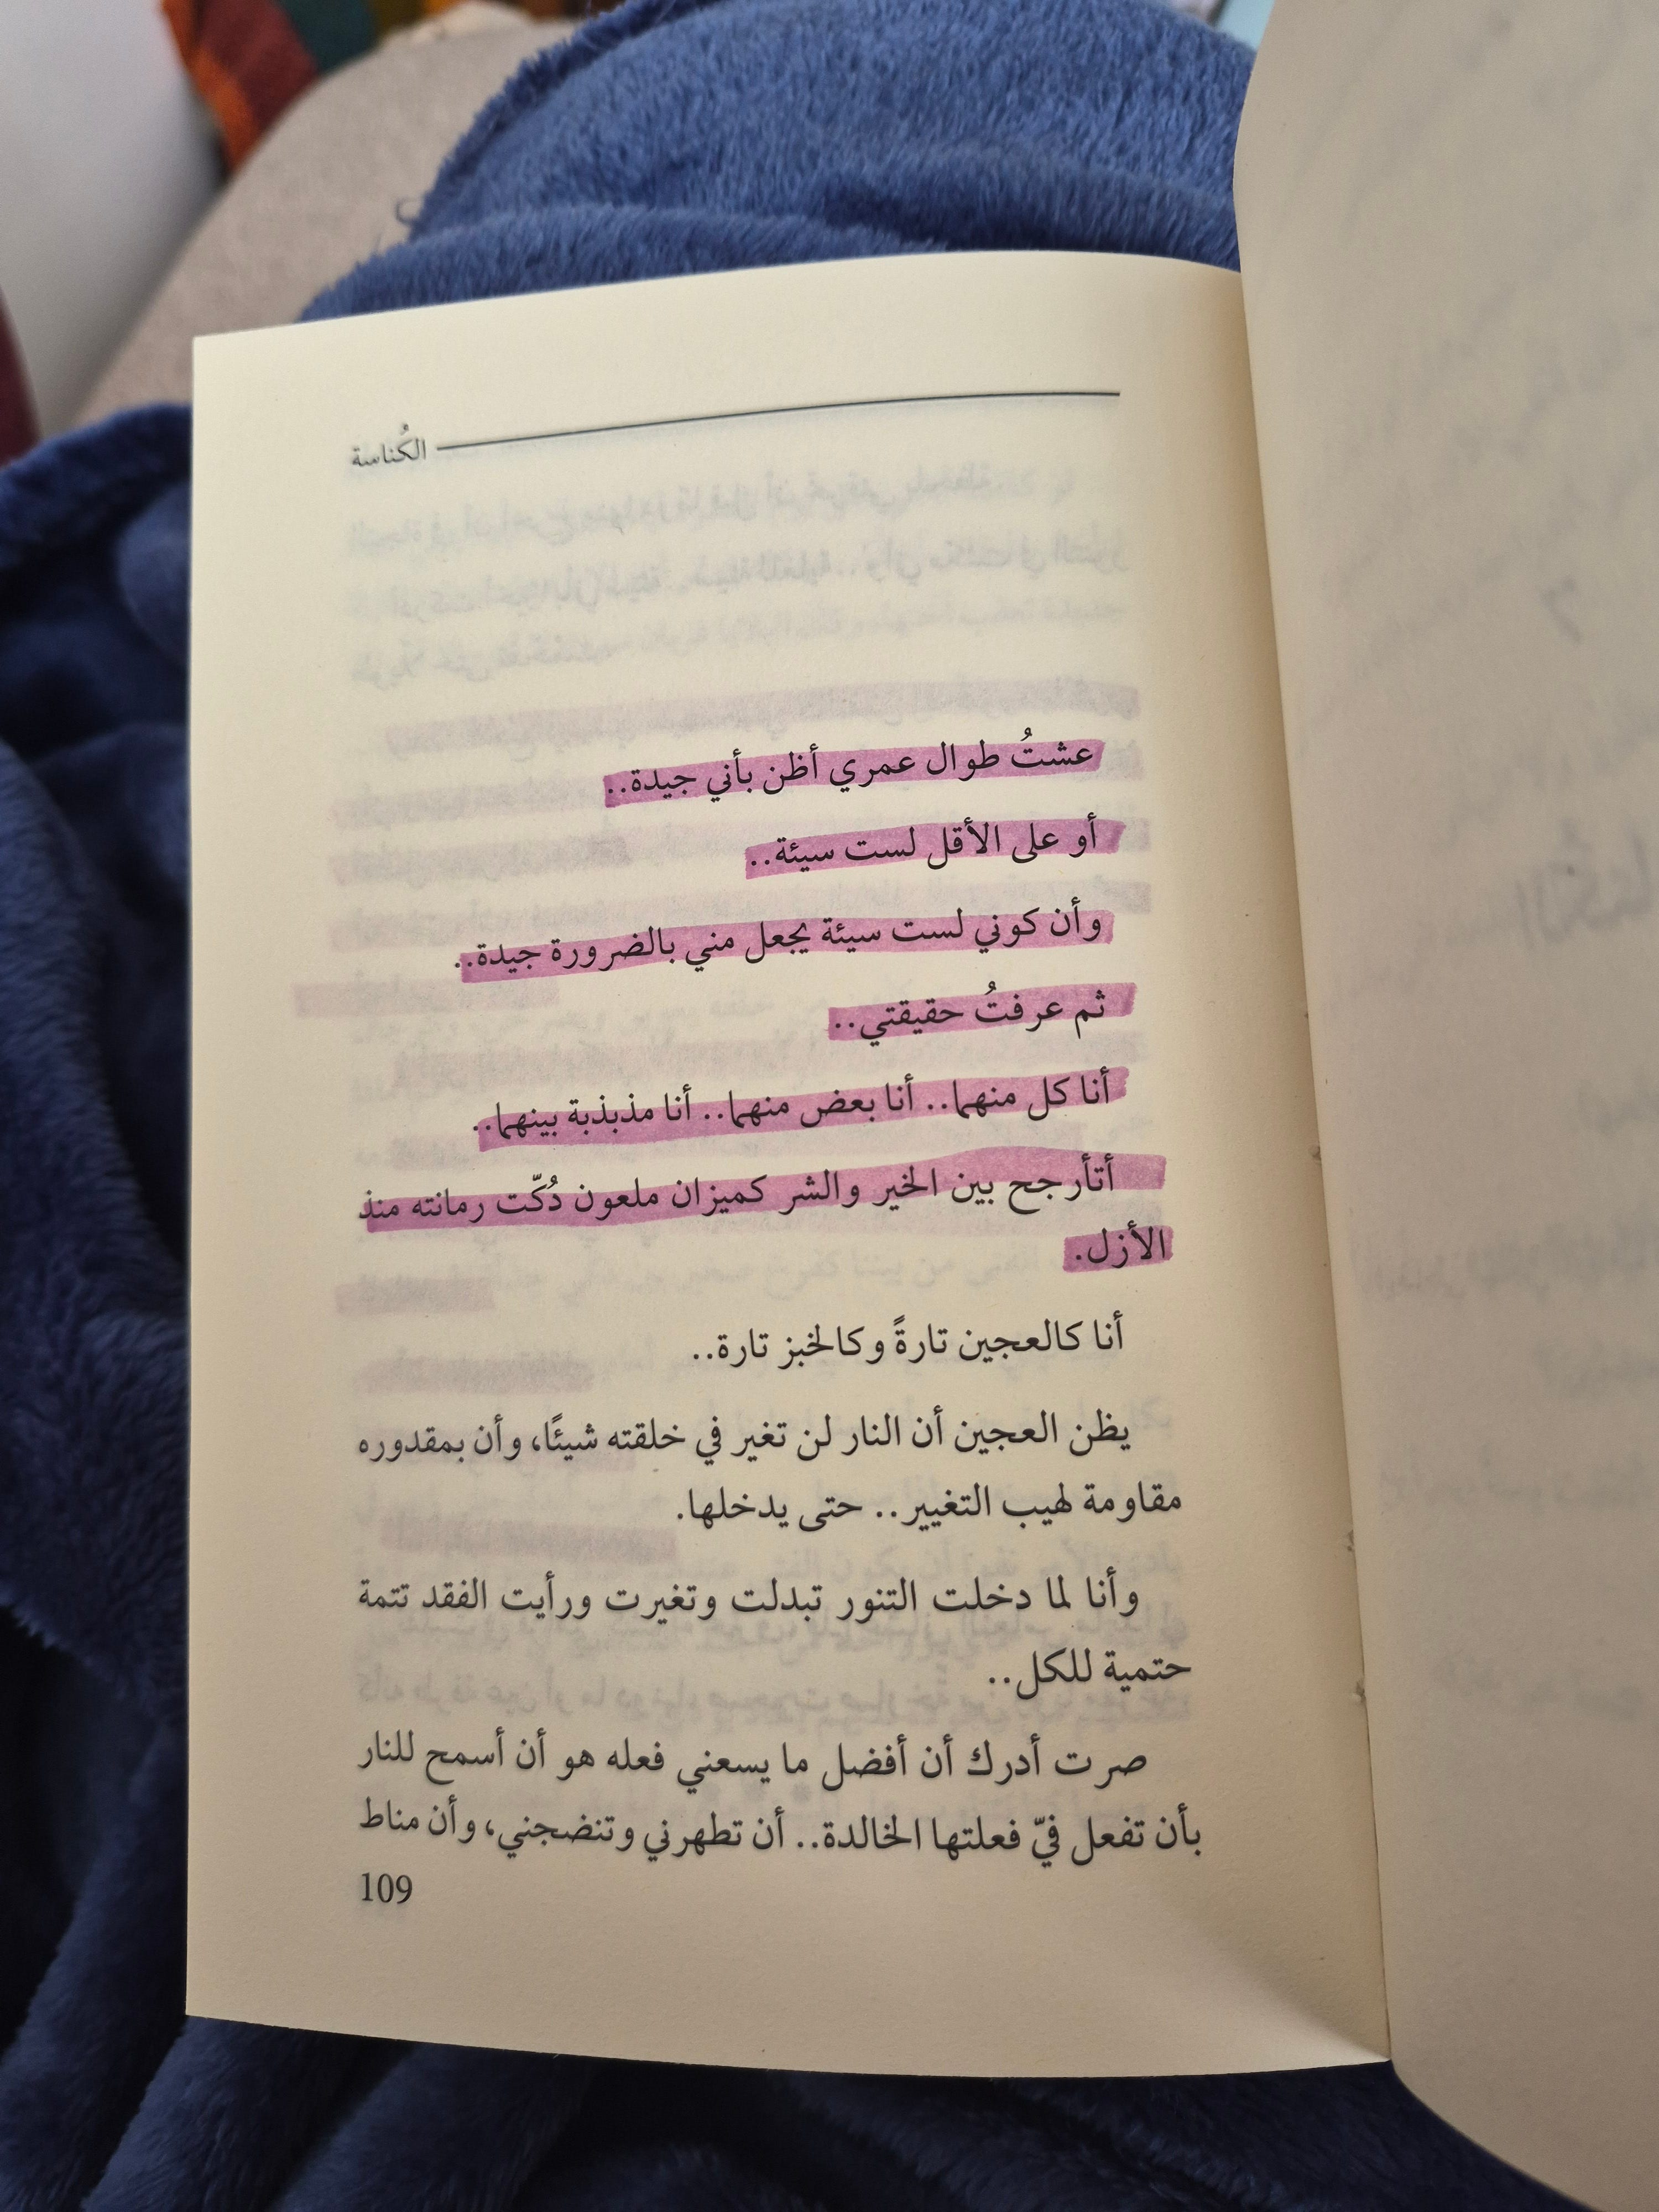 الكُناسة
عشتُ طوال عمري أظن بأني جيدة..
أو على الأقل لست سيئة..
وأن كوني لست سيئة يجعل مني بالضرورة جيدة..
ثم عرفتُ حقيقتي..
أنا كل منهما.. أنا بعض منهما.. أنا مذبذبة بينهما..
أتأرجح بين الخير والشر كميزان ملعون دُكّت رمانته منذ
الأزل.
أنا كالعجين تارةً وكالخبز تارة..
يظن العجين أن النار لن تغير في خلقته شيئًا، وأن بمقدوره
مقاومة لهيب التغيير.. حتى يدخلها.
وأنا لما دخلت التنور تبدلت وتغيرت ورأيت الفقد تتمة
حتمية للكل..
صرت أدرك أن أفضل ما يسعني فعله هو أن أسمح للنار
بأن تفعل فيّ فعلتها الخالدة.. أن تطهرني وتنضجني، وأن مناط
109